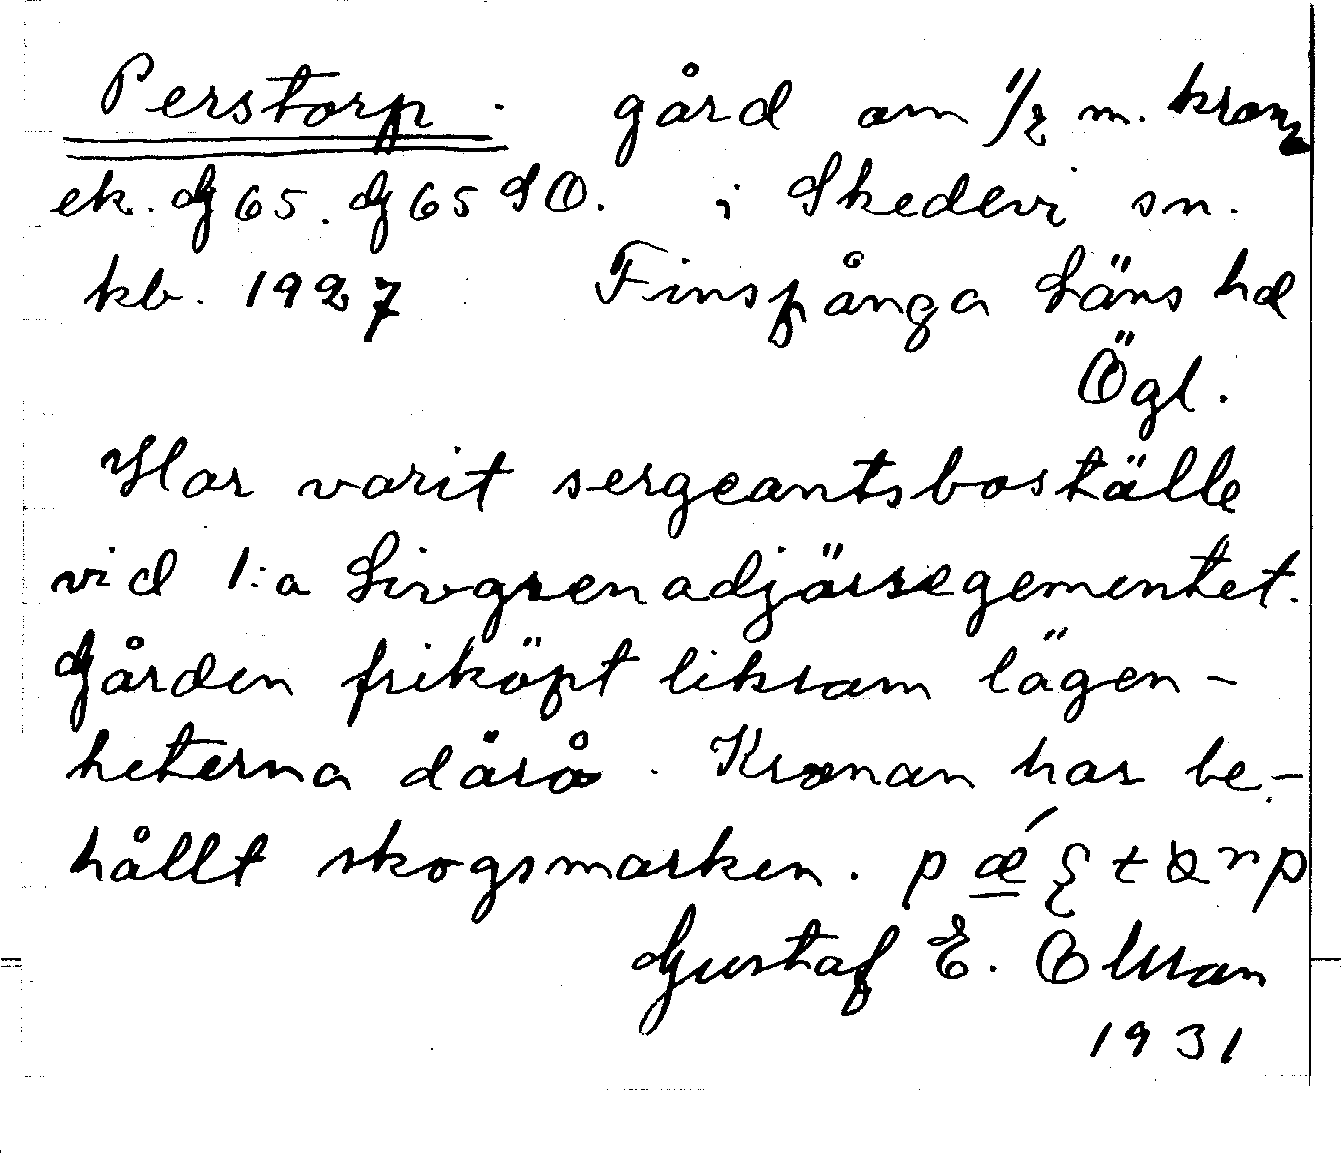 Perstorp. gård om 1/2 m. kron
ek. G 65. G 65 SO. i Skedevi sn.
kb. 1927 Finspånga Läns hd
Ögl.
Har varit sergeantsboställe
vid 1:a Livgrenadjärregementet.
Gården friköpt liksom lägen-
heterna därå. Kronan har be-
hållt skogsmarken.
Gustaf E. Olsson
1931